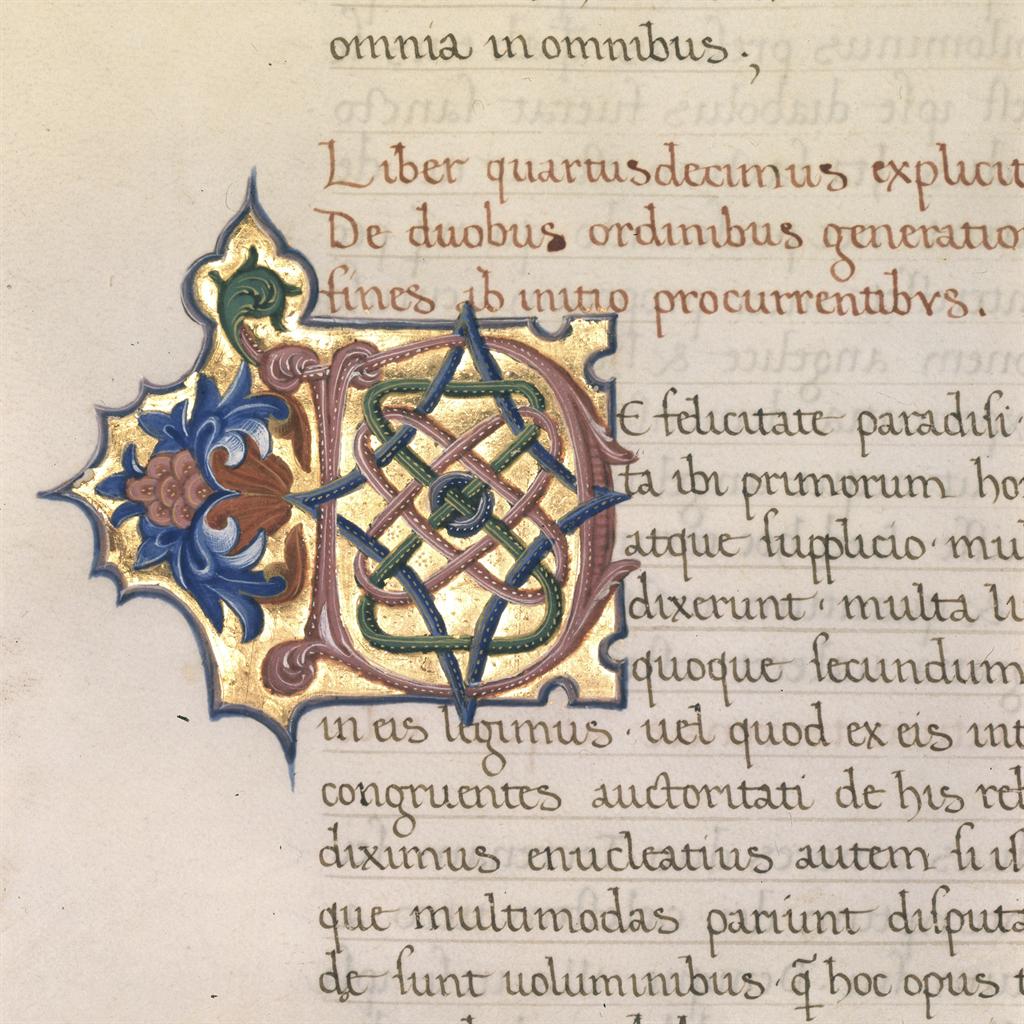 omnia in omnibus ;
Liber quartusdecimus explicit
De duobus ordinibus generatio
fines ab initio procurrentibvs.
DE felicitate paradisi ·
ta ibi primorum ho
atque supplicio · mul
dixerunt · multa li
quoque secundum
in eis legimus · uel quod ex eis int
congruentes auctoritati de his red
diximus enucleatius autem si is
que multimodas pariunt disputa
de sunt uoluminibus · q̃ hoc opus t